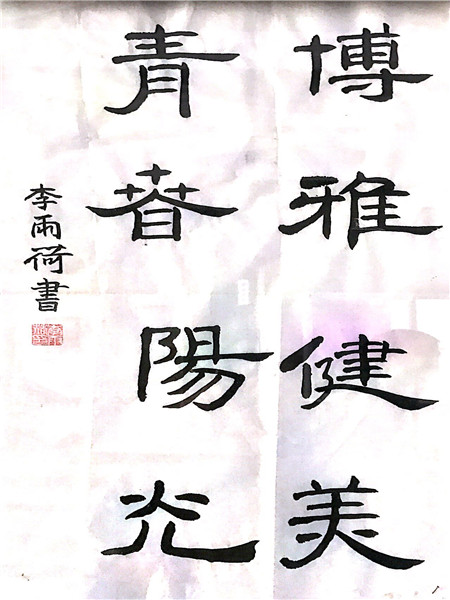 博雅健美
青春陽光
李雨荷書